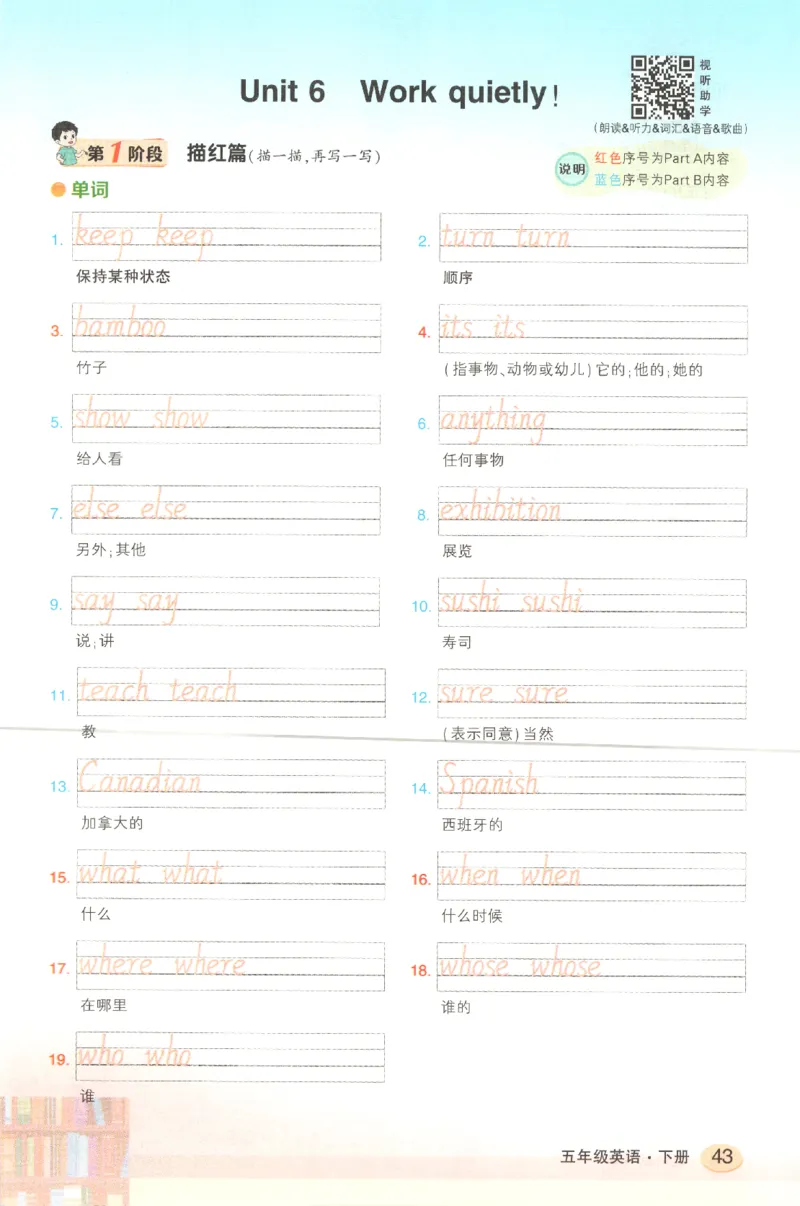 Unit 6 Work quietly!
视听助学
(朗读&听力&词汇&语音&歌曲)
第1阶段 描红篇(描一描,再写一写)
说明 红色序号为Part A内容
蓝色序号为Part B内容
单词
1. keep keep
保持某种状态
2. turn turn
顺序
3. bamboo
竹子
4. its its
(指事物、动物或幼儿)它的;他的;她的
5. show show
给人看
6. anything
任何事物
7. else else
另外;其他
8. exhibition
展览
9. say say
说;讲
10. sushi sushi
寿司
11. teach teach
教
12. sure sure
(表示同意)当然
13. Canadian
加拿大的
14. Spanish
西班牙的
15. what what
什么
16. when when
什么时候
17. where where
在哪里
18. whose whose
谁的
19. who who
谁
五年级英语·下册 43